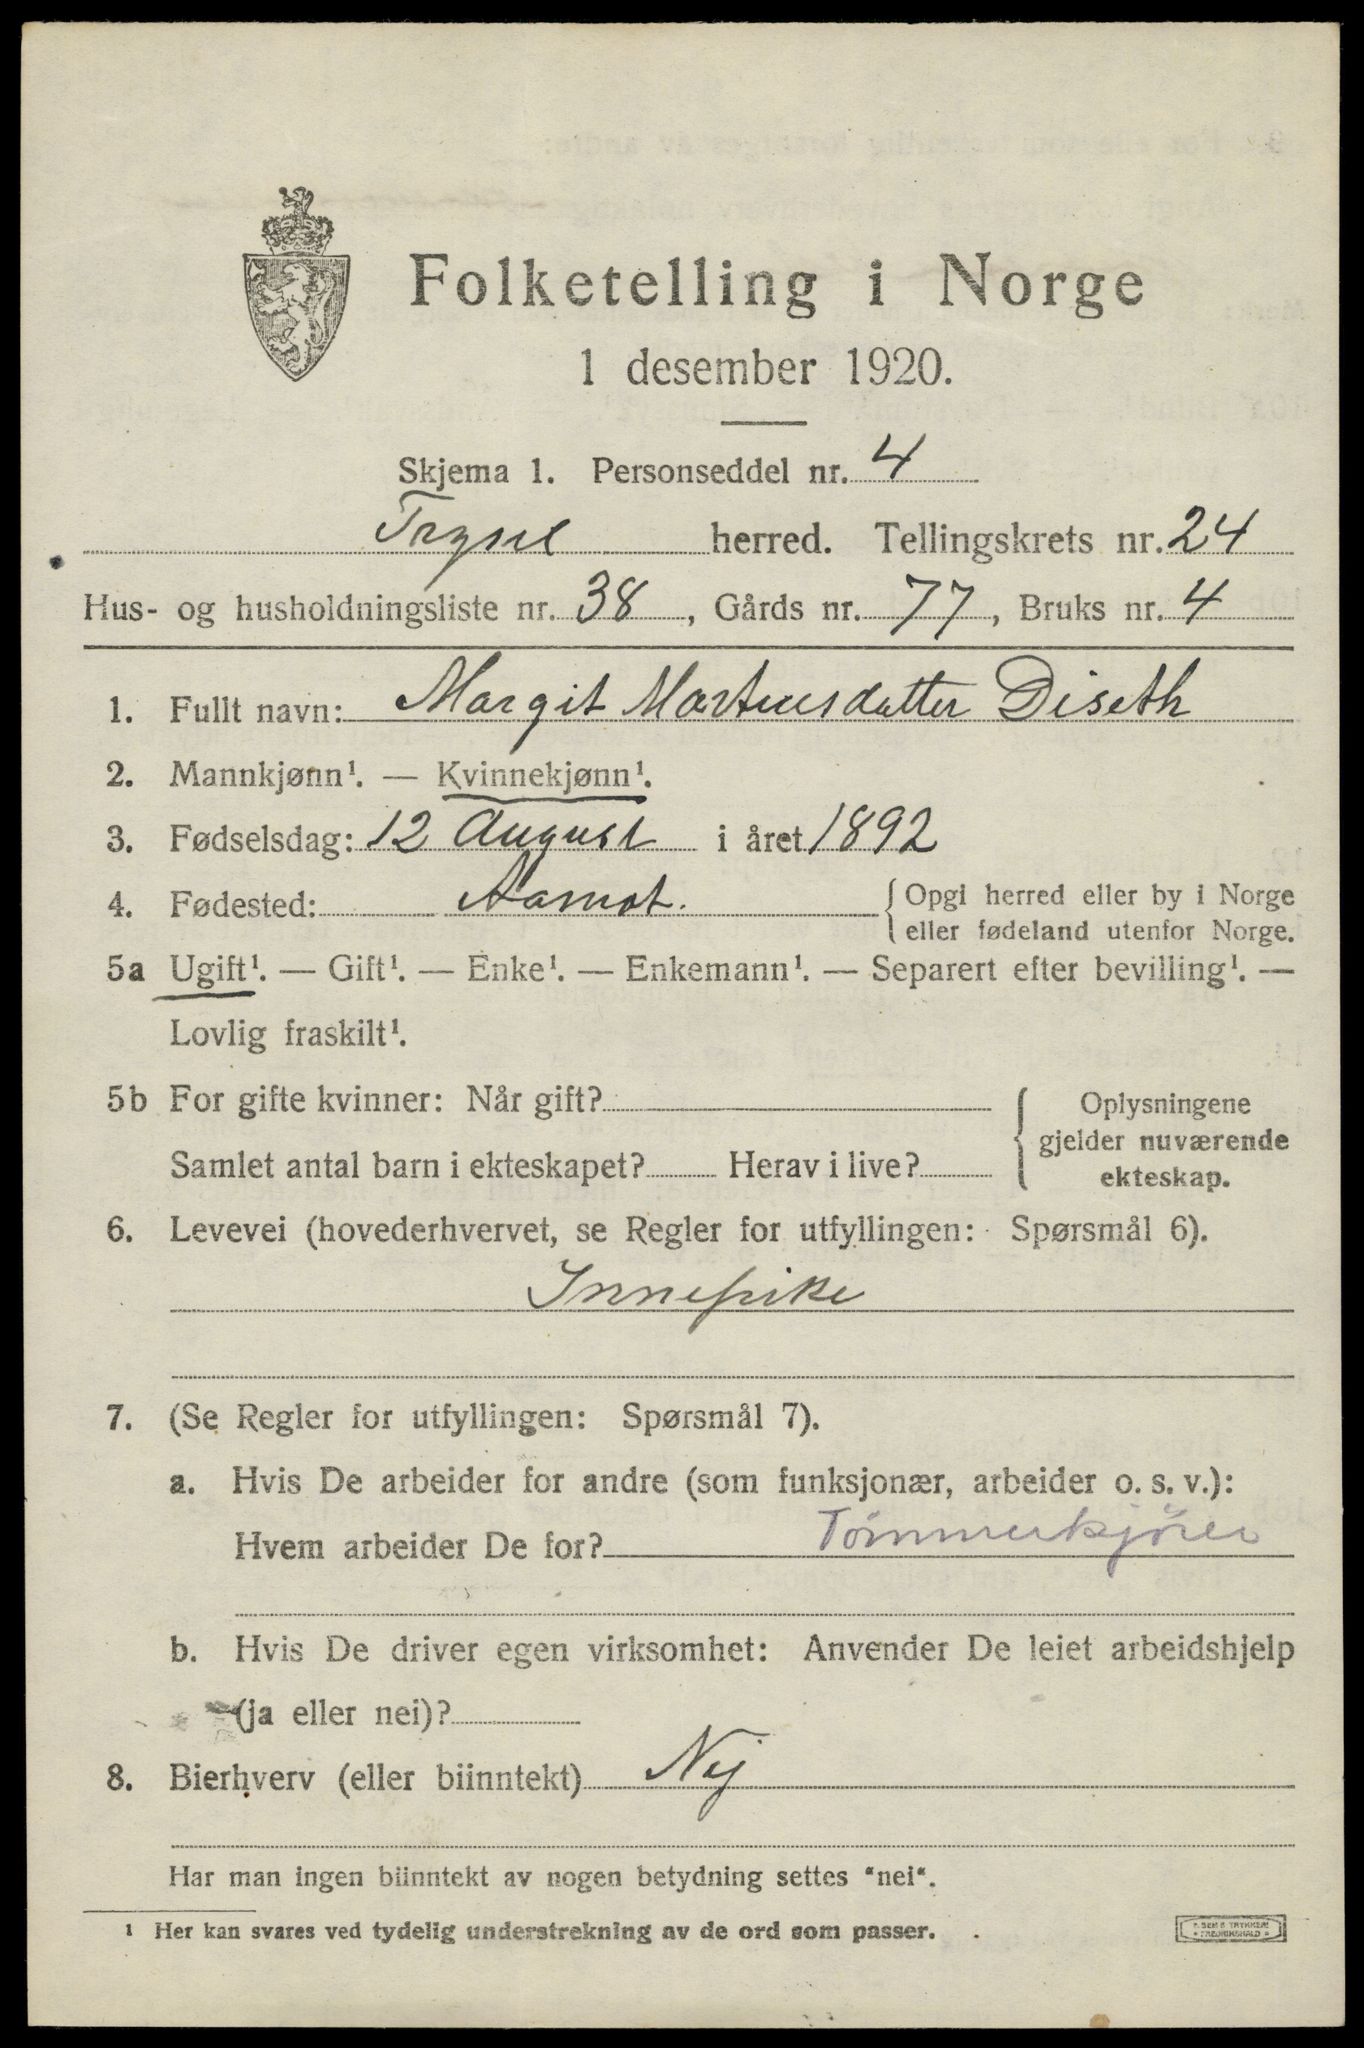 Folketelling i Norge
1 desember 1920.
Skjema 1. Personseddel nr. 4
Trysil herred. Tellingskrets nr. 24
Hus- og husholdningsliste nr. 38, Gårds nr. 77, Bruks nr. 4
1. Fullt navn: Margit Martinusdatter Diseth
2. Mannkjønn¹. — Kvinnekjønn¹.
3. Fødselsdag: 12 August i året 1892
4. Fødested: Aamot. { Opgi herred eller by i Norge
eller fødeland utenfor Norge.
5a Ugift¹. — Gift¹. — Enke¹. — Enkemann¹. — Separert efter bevilling¹. —
Lovlig fraskilt¹.
5b For gifte kvinner: Når gift?
Samlet antal barn i ekteskapet? Herav i live?
{ Oplysningene
gjelder nuværende
ekteskap.
6. Levevei (hovederhvervet, se Regler for utfyllingen: Spørsmål 6).
Innepike
7. (Se Regler for utfyllingen: Spørsmål 7).
a. Hvis De arbeider for andre (som funksjonær, arbeider o. s. v.):
Hvem arbeider De for? Tømmerkjører
b. Hvis De driver egen virksomhet: Anvender De leiet arbeidshjelp
(ja eller nei)?
8. Bierhverv (eller biinntekt) Nej
Har man ingen biinntekt av nogen betydning settes "nei".
¹ Her kan svares ved tydelig understrekning av de ord som passer.